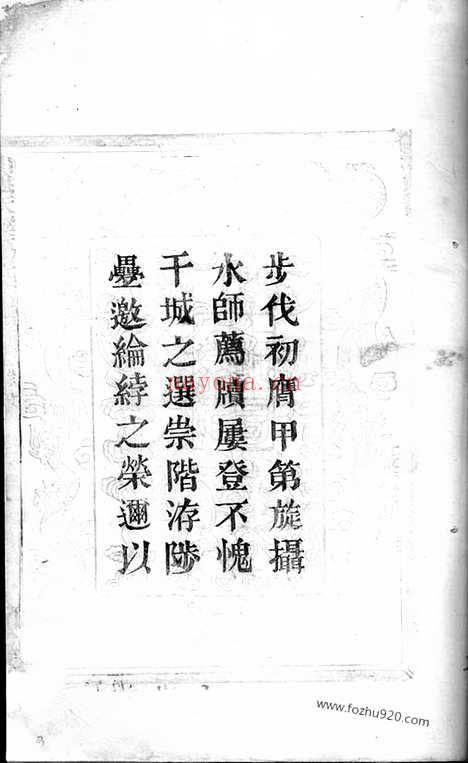 步伐初膺甲第旋攝
水師薦牘屢登不愧
干城之選崇階洊陟
疊邀綸綍之榮邇以
nayona.cn
www.fozhu920.com